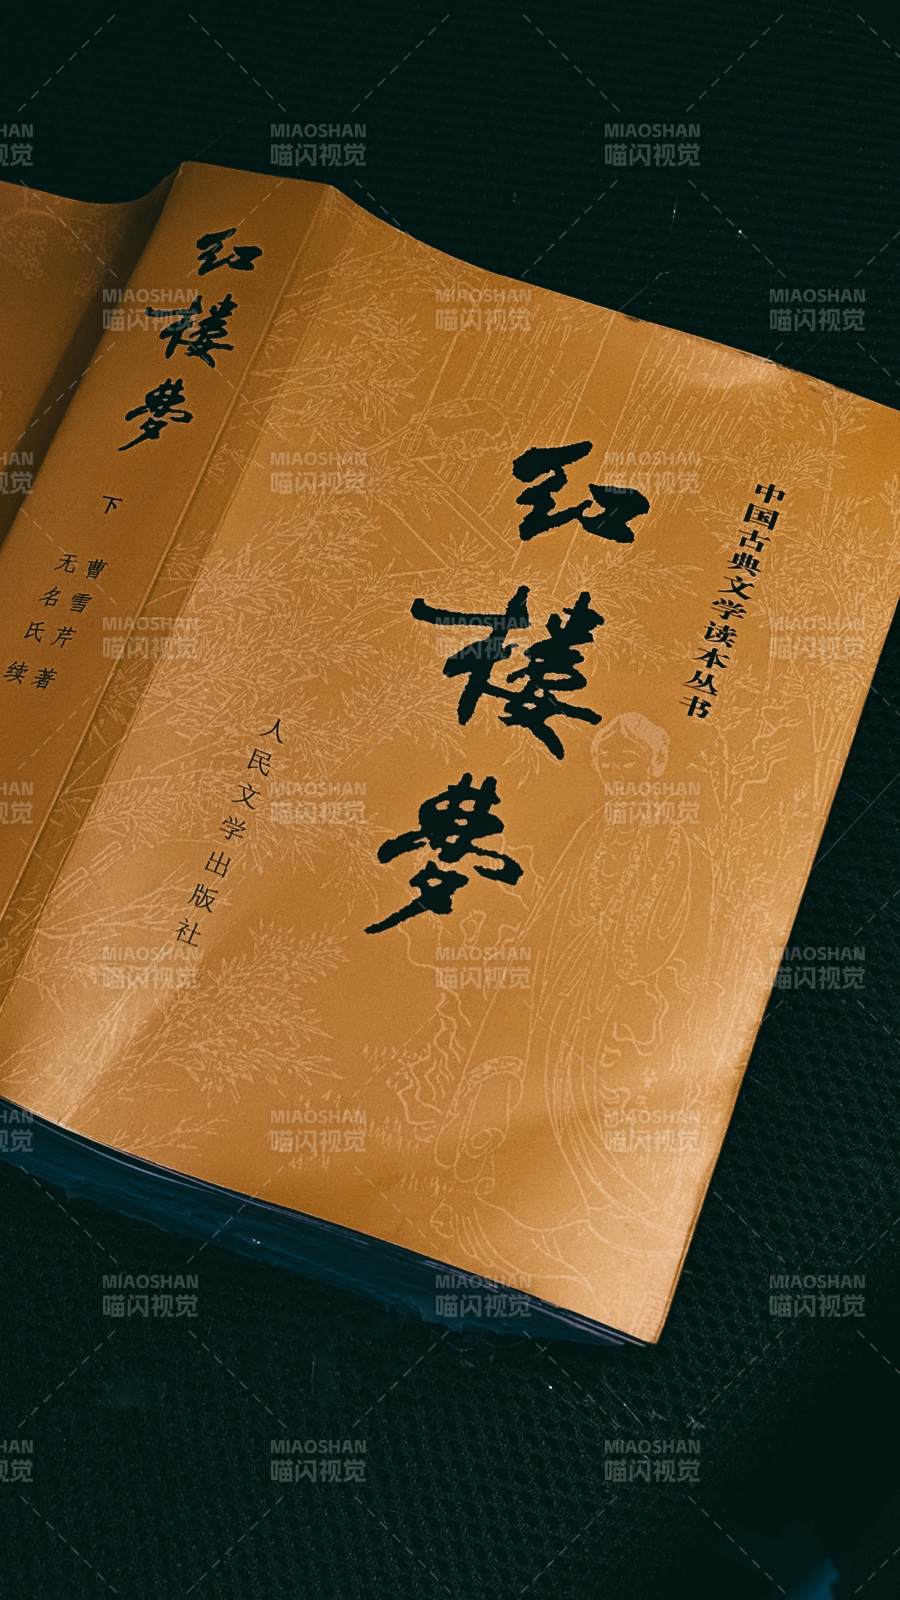 红楼梦
下
曹雪芹 著
无名氏 续
中国古典文学读本丛书
红楼梦
人民文学出版社
MIAOSHAN
喵闪视觉